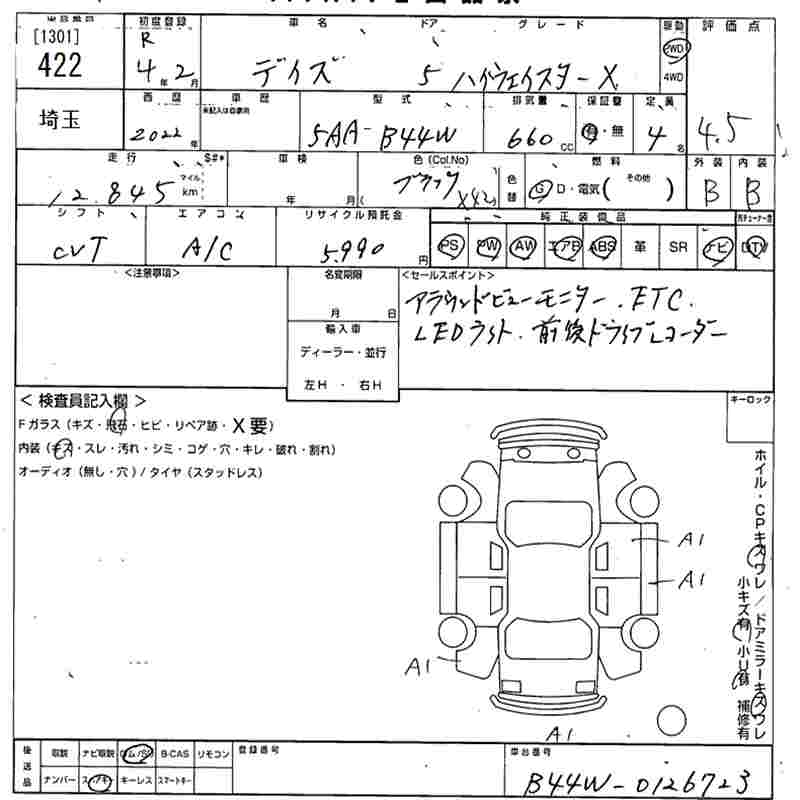 [1301]
422
初度登録
R
4年2月
車名
デイズ
ドア
5
グレード
ハイウェイスターX
駆動
2WD
4WD
評価点
4.5
埼玉
西暦
2022年
車歴
※記入は自家用
型式
5AA-B44W
排気量
660cc
保証書
有・無
定員
4名
走行
$#*
12,845
マイル
km
車検
年 月
色(Col.No)
ブラック
(X42)
色替
燃料
G D・電気( その他 )
外装
B
内装
B
シフト
CVT
エアコン
A/C
リサイクル預託金
5,990円
純正装備品
PS PW AW エアB ABS 革 SR ナビ
<注意事項>
名変期限
月 日
輸入車
ディーラー・並行
左H ・ 右H
<セールスポイント>
アラウンドビューモニター、ETC、
LEDライト、前後ドライブレコーダー
<検査員記入欄>
Fガラス(キズ・飛石・ヒビ・リペア跡・X要)
内装(キズ・スレ・汚れ・シミ・コゲ・穴・キレ・破れ・割れ)
オーディオ(無し・穴)/タイヤ(スタッドレス)
キーロック
A1
A1
A1
A1
ホイル・CPキズワレ/ドアミラーキズワレ
小キズ有 小U有 補修有
後送品
取説 ナビ取説 B-CAS リモコン
ナンバー キーレス スマートキー
登録番号
車台番号
B44W-0126723